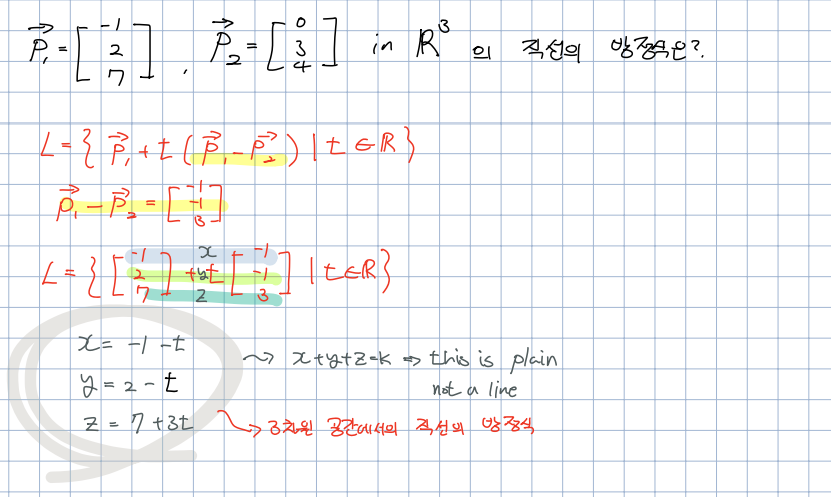 P₁ = [-1 2 7], P₂ = [0 3 4] in ℝ³ 의 직선의 방정식은?
L = { P₁ + t ( P₁ - P₂ ) | t ∈ ℝ }
P₁ - P₂ = [-1 -1 3]
L = { [-1 2 7] + t [-1 -1 3] | t ∈ ℝ }
x y z
x = -1 - t
y = 2 - t
z = 7 + 3t
~> x+y+z=k ⇒ this is plain
not a line
~> 3차원 공간에서의 직선의 방정식